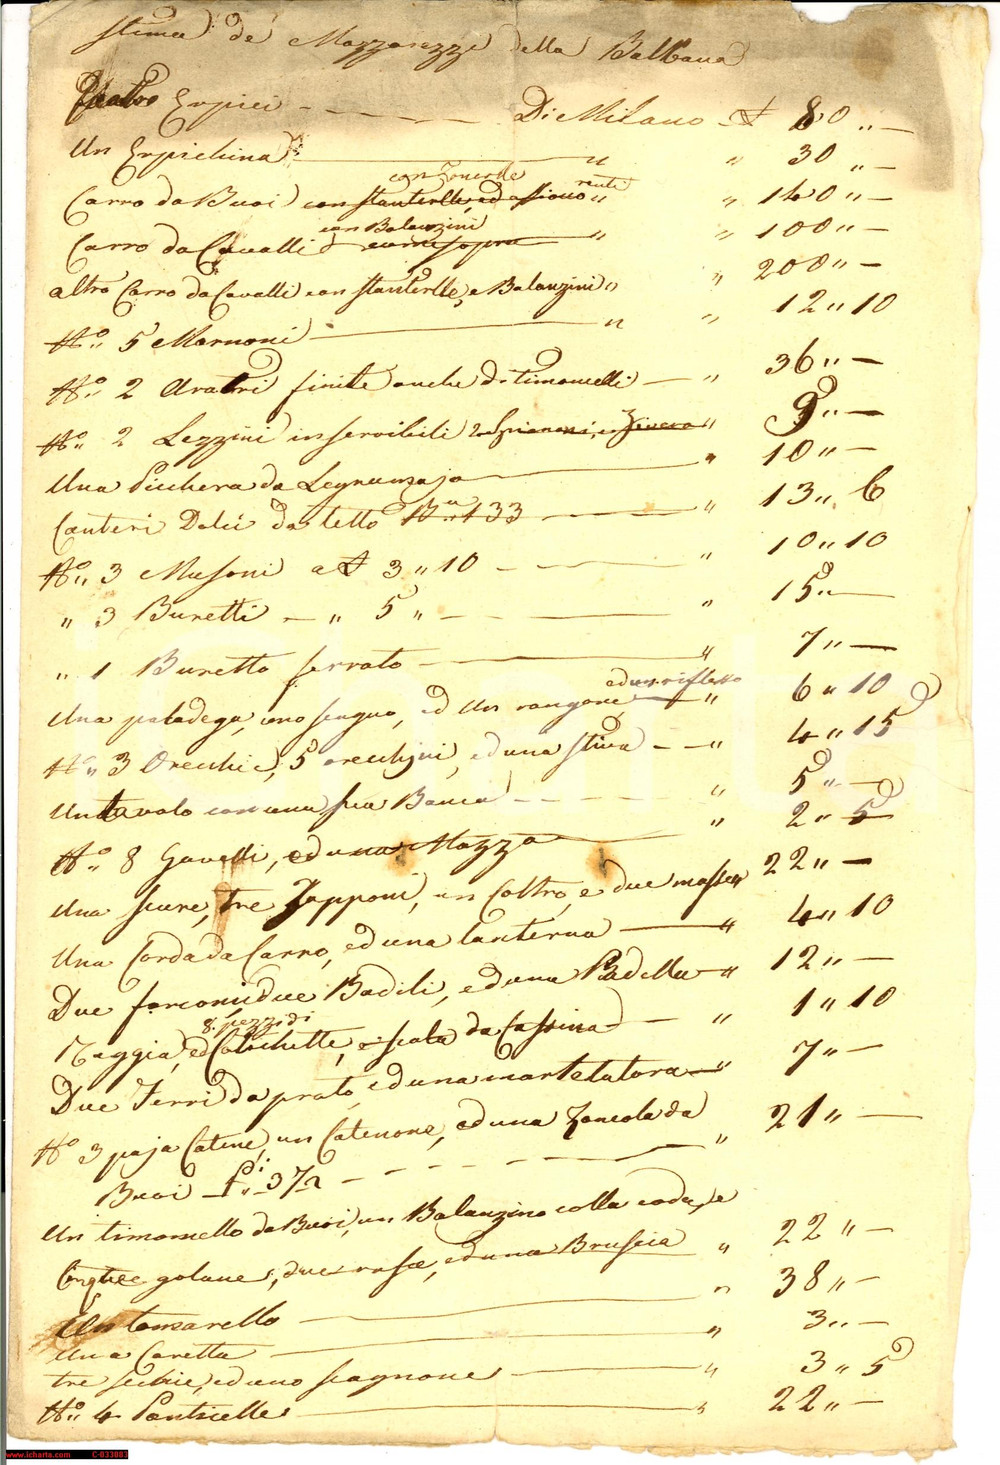 Stima de' Mazzarezzi della Balbana
Quattro Erpici - - - - Di Milano £ 80 " —
Un Erpichina — " " 30 " —
con Zoncole
Carro da Buoi con stanterlle, ed assione " " 140 " —
con Balanzini
Carro da Cavalli come sopra " " 100 " —
altro Carro da Cavalli con stanterlle, e Balanzini " " 200 " —
N.o 5 Marnoni — " " 12 " 10
N.o 2 Aratri finite anche di timonzelli — " 36 " —
N.o 2 Lezzini inservibili " 9 " —
Una Picchera da Legnamajo — " 10 " —
Canteri Dolci da tetto B.n 133 — " 13 " 6
N.o 3 Musoni a £ 3 " 10 — " 10 " 10
" 3 Buretti — " 5 " — " 15 " —
" 1 Buretto ferrato — " 7 " —
ed un riflesso
Una padadega, uno segno, ed Un rangone " 6 " 10
N.o 3 Orecchie, 5 orecchini, ed una stiva — " 4 " 15
Un tavolo con una sua Banca - - - " 5 " —
N.o 8 Gavelli, ed una Mazza — " 2 " 5
Una scure, tre Zapponi, un Coltro, e due masse " 22 " —
Una Corda da Carro, ed una lanterna — " 4 " 10
Due forconi due Badili, ed una Padella — " 12 " —
8. pezzi di
ed Catichette, e scala da Cassina — " 1 " 10
Due Ferri da prato, ed una martelatora — " 7 " —
N.o 3 paja Catene, un Catenone, ed una Zoncola da
Buoi - - - " 21 " —
Un timonzello da Buoi, un Balanzino colla coda, e
Cinque golane, due rase, ed una Bruscia " 22 " —
Un tomarello — " 38 " —
Una Caretta — " 3 " —
tre secchie, ed uno scagnone — " 3 " 5
N.o 4 Ponticelle — " 22 " —
www.icharta.com C-033003